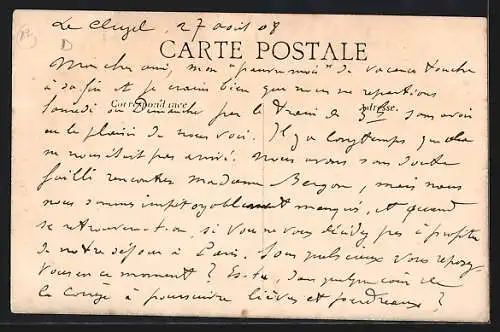 Le Cluzel, 27 août 08
CARTE POSTALE
Mon cher ami, mon "pauvre mois" de vacances touche
à sa fin et je crains bien que nous ne repartions
Correspondance Adresse.
samedi ou Dimanche par le train de sans avoir
eu le plaisir de nous voir. Il y a longtemps que cela
ne nous était pas arrivé. Nous avons sans doute
failli rencontrer madame mais nous
nous sommes impitoyablement manqués, et quand
se retrouvera-t-on, si vous ne vous décidez pas à profiter
de notre séjour à Paris. Dans quels eaux vous reposez
vous en ce moment? Es-tu, dans quelque coin de
la Corrèze à poursuivre lièvres et perdreaux?